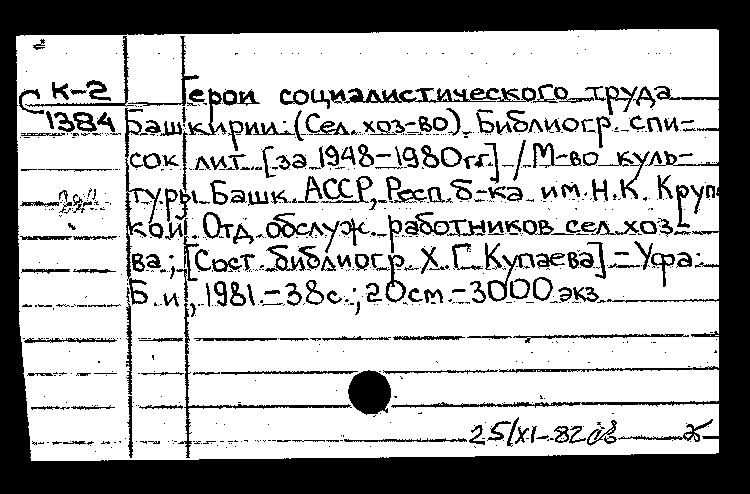 К-2 Герои социалистического труда
С 1384 Башкирии: (Сел. хоз-во). Библиогр. спи-
сок лит. [за 1948-1980гг.] / М-во куль-
туры Башк. АССР, Респ. б-ка им. Н.К. Круп
кой. Отд. обслуж. работников сел. хоз-
ва; [Сост. библиогр. Х.Г. Купаева] - Уфа:
Б.и, 1981. - 38с.; 20см. - 3000 экз
25/XI-82